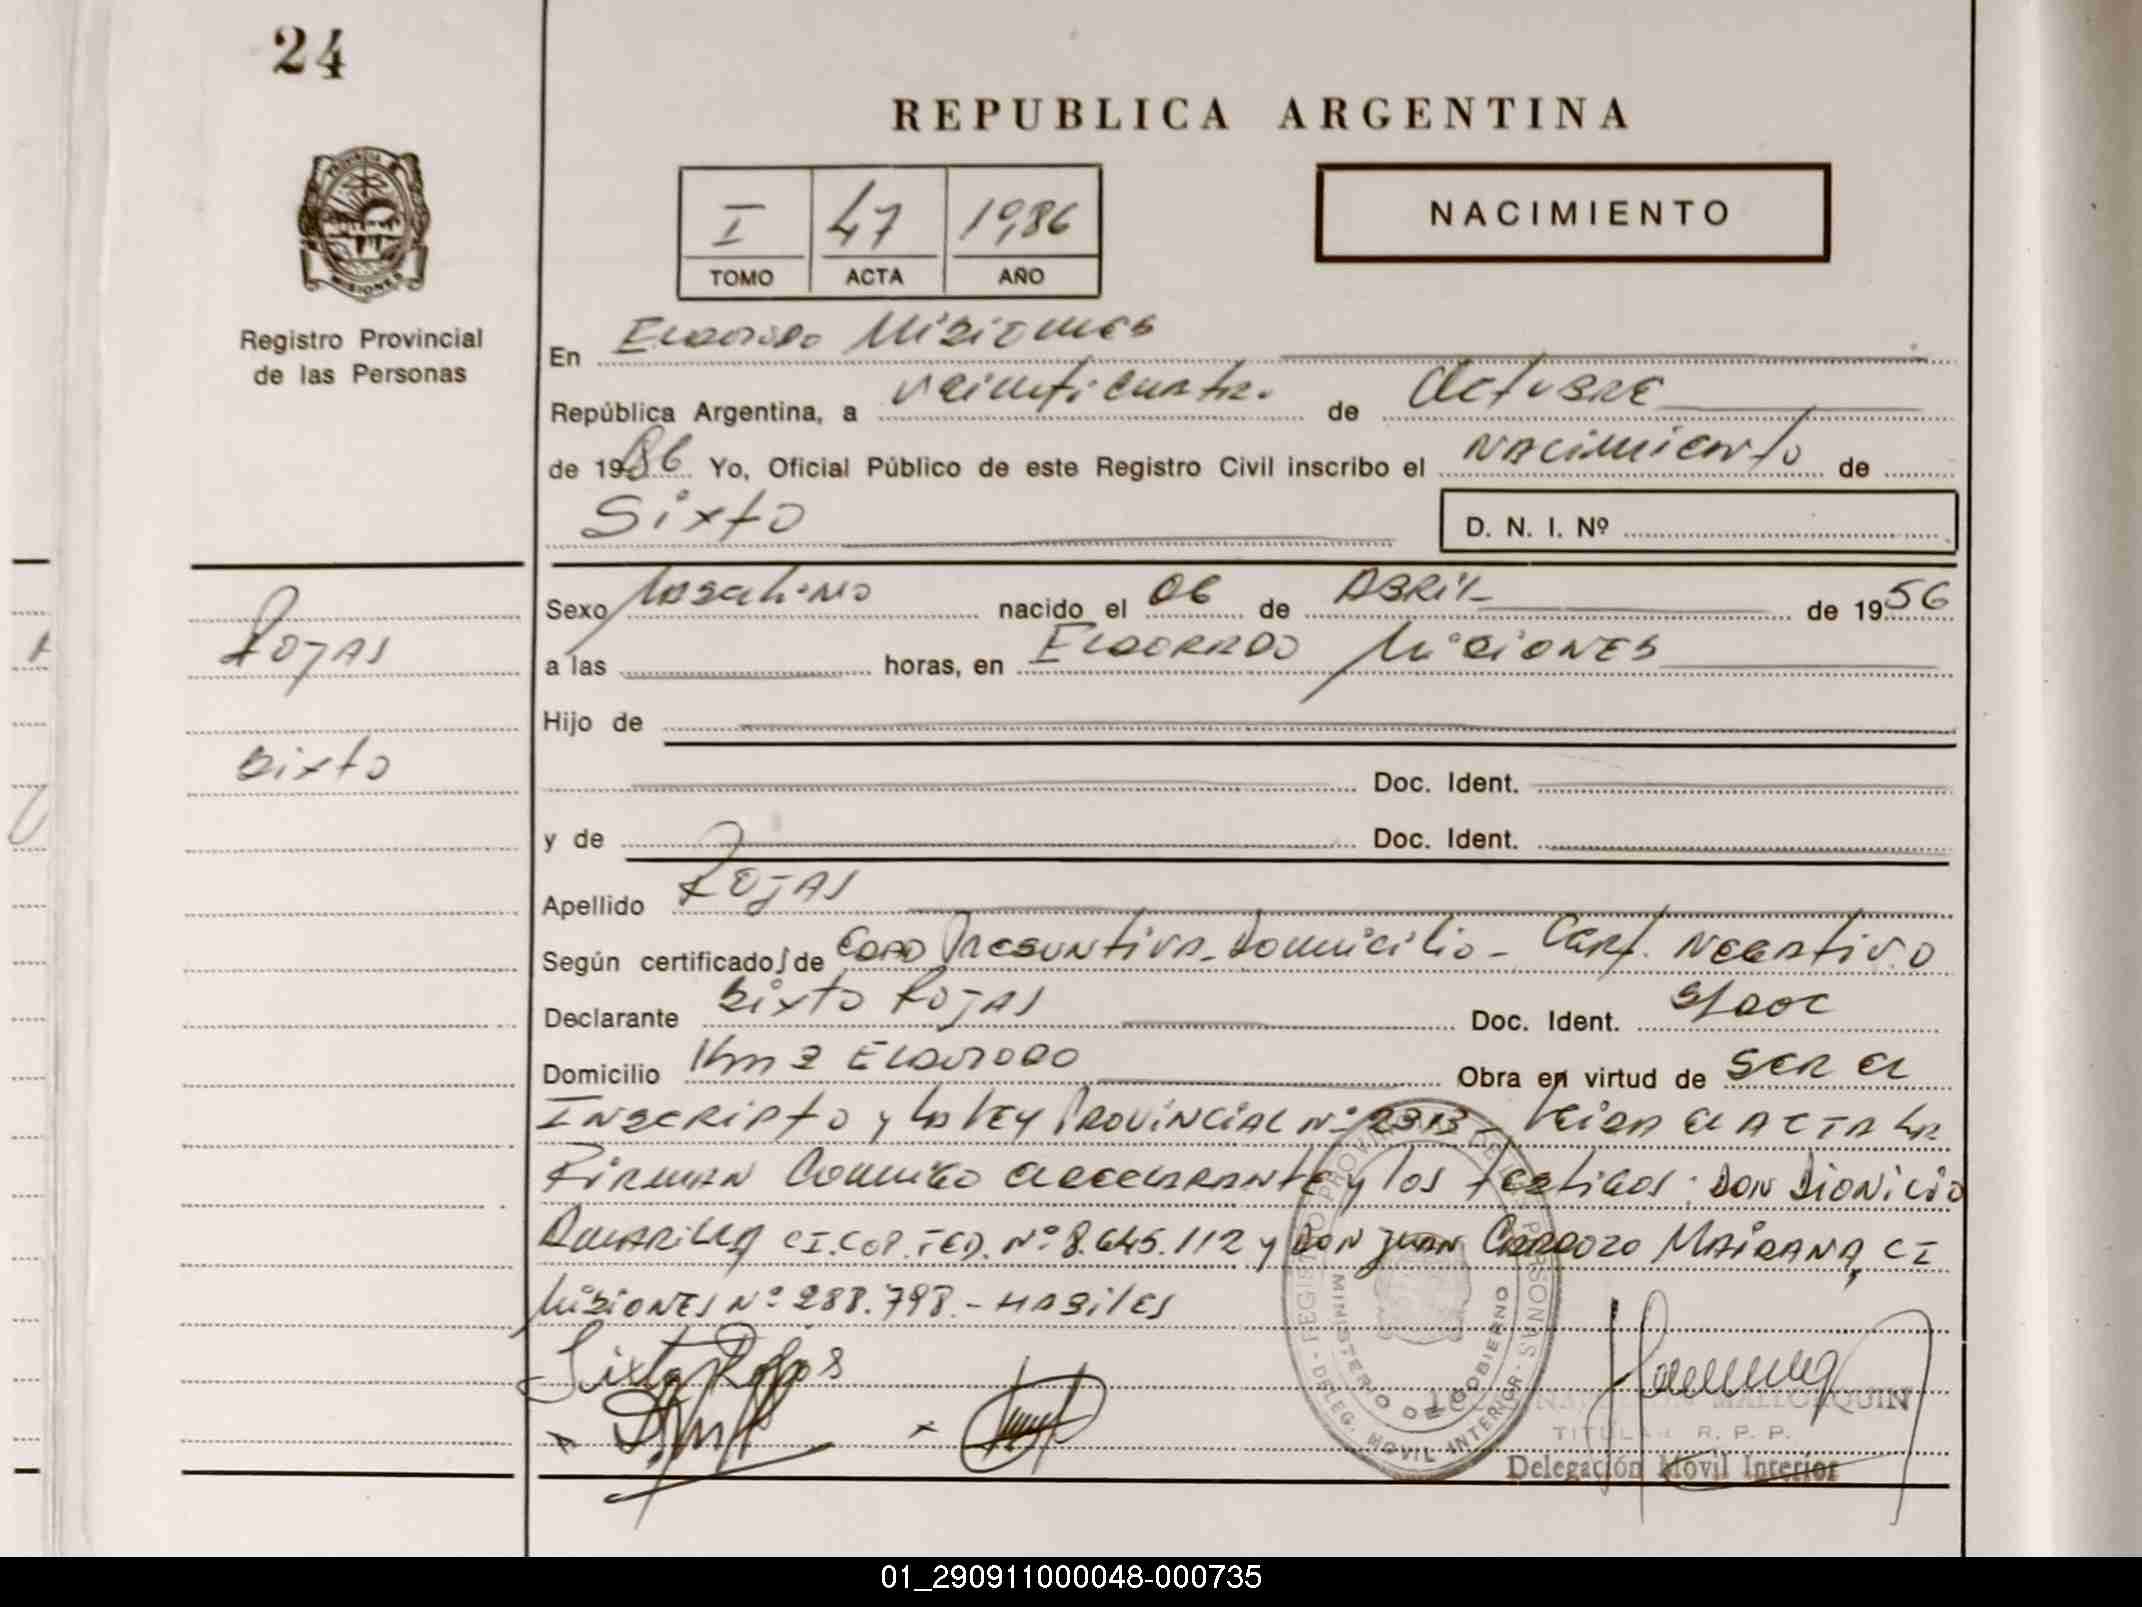 24
REPUBLICA ARGENTINA
PROVINCIA
MISIONES
I 47 1986
TOMO ACTA AÑO
NACIMIENTO
Registro Provincial
de las Personas
En Eldorado Misiones
República Argentina, a veinticuatro de Octubre
de 1986 Yo, Oficial Público de este Registro Civil inscribo el nacimiento de
Sixto
D. N. I. Nº
Rojas
Sixto
Sexo Masculino nacido el 06 de Abril de 1956
a las horas, en Eldorado Misiones
Hijo de
Doc. Ident.
y de Doc. Ident.
Apellido Rojas
Según certificado/de Edad Presuntiva - Domicilio - Cert. Negativo
Declarante Sixto Rojas Doc. Ident. S/doc
Domicilio Km 2 Eldorado Obra en virtud de ser el
Inscripto y la Ley Provincial Nº 2313 - Leida el acta la
Firman conmigo declarante y los testigos: Don Dionicio
Amarilla C.I. Cop. Fed. Nº 8.645.112 y Don Juan Cardozo Mairana, C I
Misiones Nº 288.798.- Habiles
Sixto Rojas
REGISTRO PROVINCIAL DE LAS PERSONAS - DELEG. MOVIL INTERIOR -
MINISTERIO DE GOBIERNO
MALLORQUIN
TITULAR R. P. P.
Delegación Móvil Interior
01_290911000048-000735